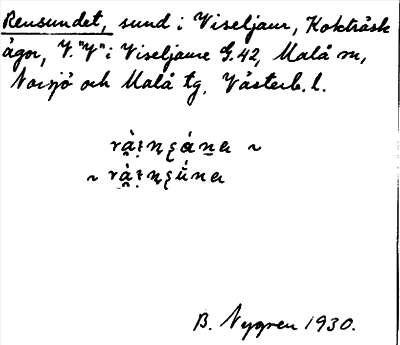 Rensundet, sund i Viseljaur, Kokträsk
ägor, V. "Y" i Viseljaure G. 42, Malå m,
Norsjö och Malå tg, Västerb. l.
B. Nygren 1930.